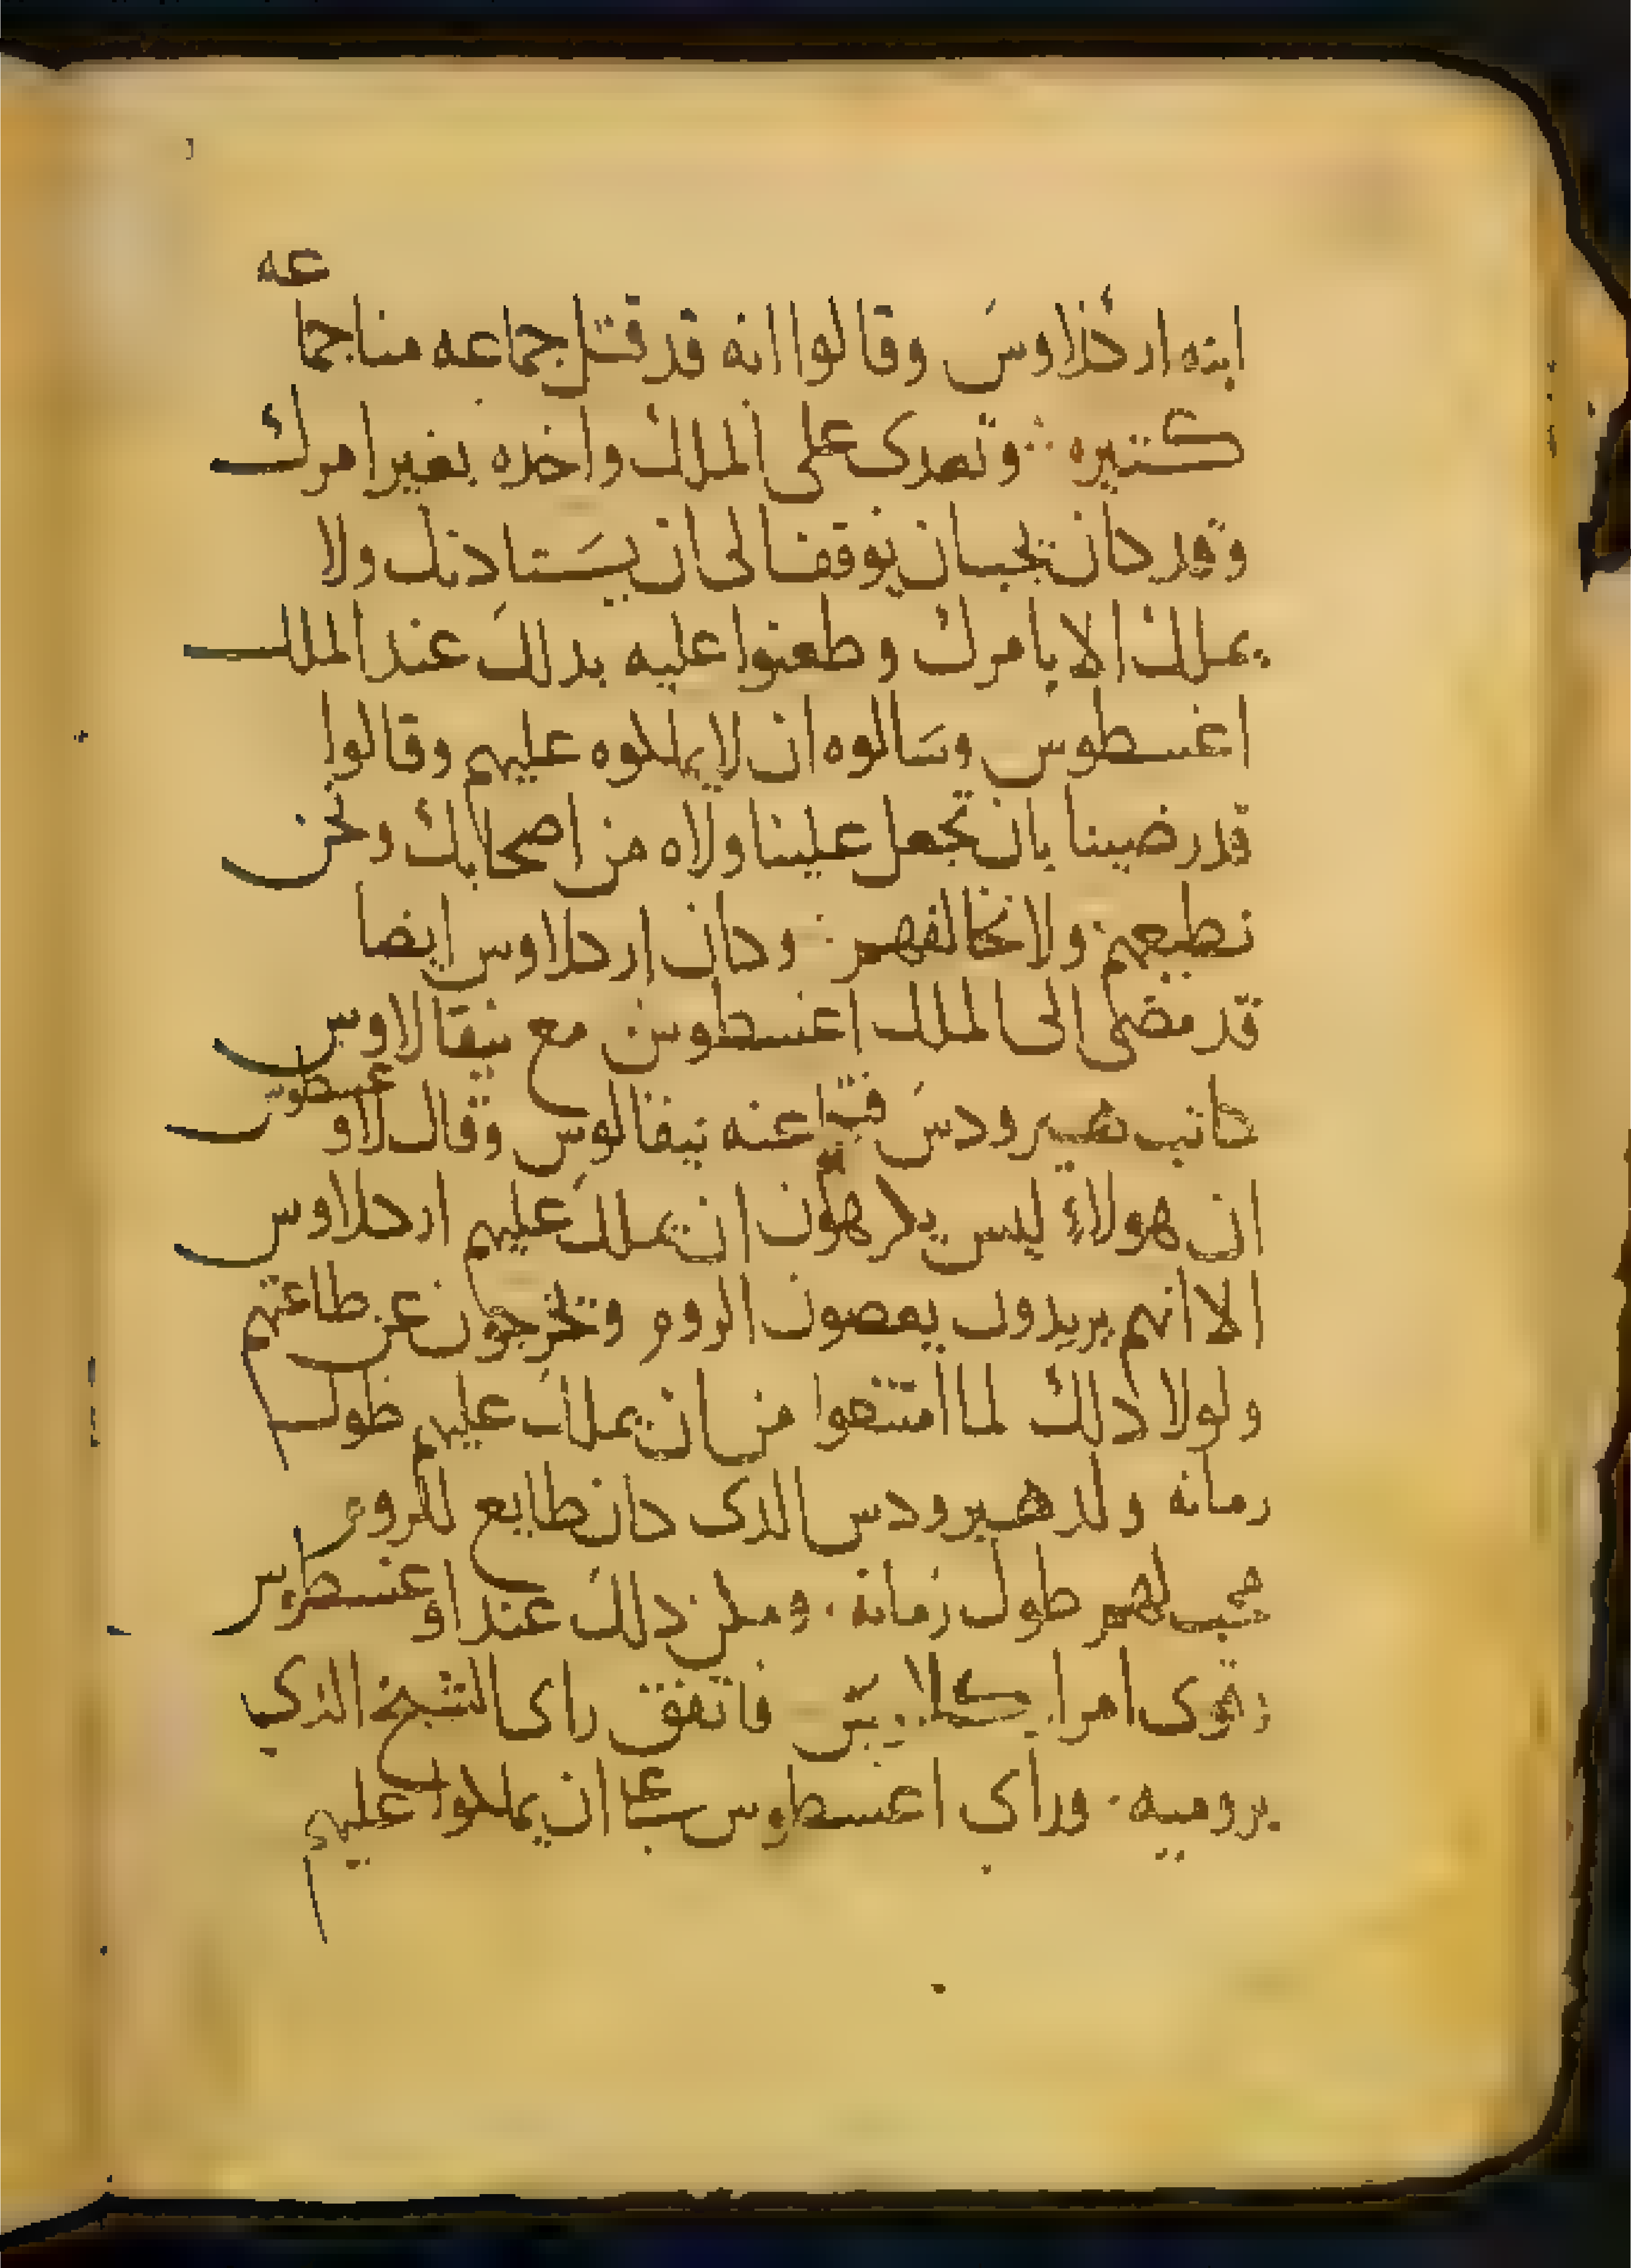 ابنه اركلاوس وقالوا انه قد قتل جماعه منا جماعه
كتيره وتعدى على الملك واخده بغير امرك
وقد كان يجب ان يوقف الى ان يستادنك ولا
يملك الا بامرك وطعنوا عليه بدلك عند الملك
اغسطوس وسالوه ان لا يملكوه عليهم وقالوا
قد رضينا بان تجعل علينا ولاه من اصحابك ونحن
نطيعهم ولا نخالفهم وكان اركلاوس ايضا
قد مضى الى الملك اغسطوس مع نيقالاوس
كاتب هيرودس عنه نيقالوس وقال لاوغسطوس
ان هولاء ليس يكرهون ان يملك عليهم اركلاوس
الا انهم يريدون يعصون الروم ويخرجون عن طاعتهم
ولولا دلك لما امتنعوا من ان يملك عليهم طول
زمانه ولد هيرودس الدى كان طايع للروم
محب لهم طول زمانه ومكن دلك عند اوغسطوس
وقوى امر اركلاوس فاتفق راى الشيخ الذي
بروميه وراي اغسطوس على ان يملكوا عليهم